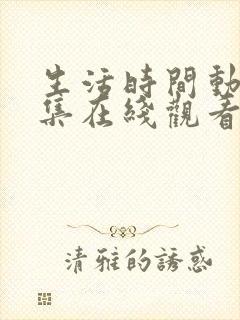 生活時間動
集在綫觀看
清雅的誘惑